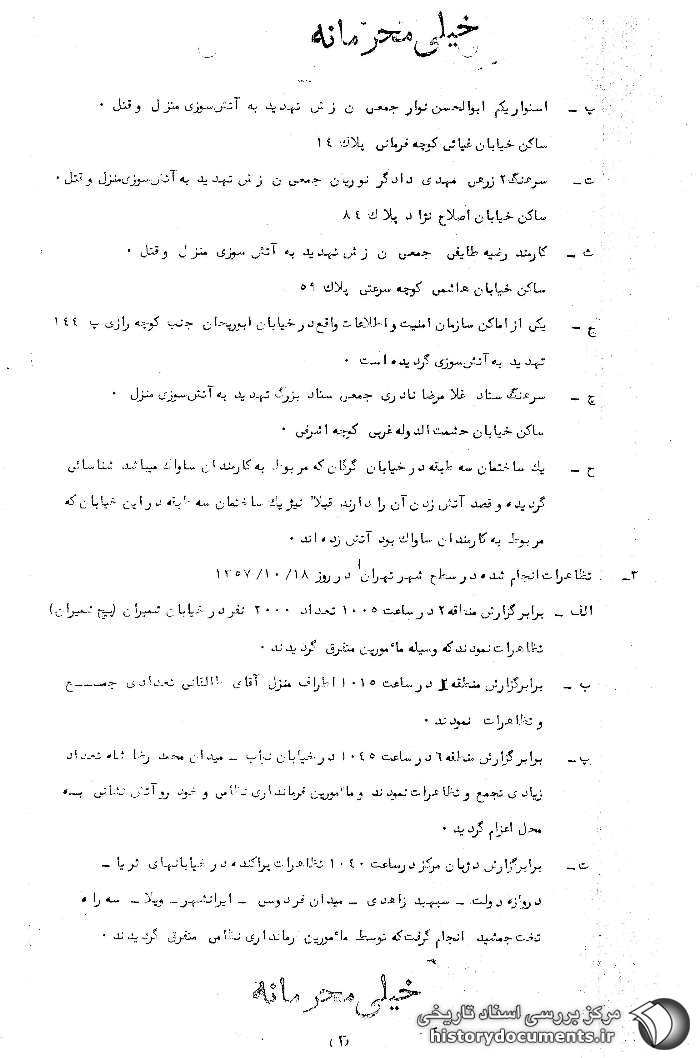 خیلی محرمانه
پ ـ استوار یکم ابوالحسن نوار جمعی ن ز ش تهدید به آتش‌سوزی منزل و قتل ۰
ساکن خیابان غیاثی کوچه فرمانی پلاک ۱٤
ت ـ سرهنگ ۲ زرهی مهدی دادگر نوریان جمعی ن ز ش تهدید به آتش‌سوزی منزل و قتل ۰
ساکن خیابان اصلاح نژاد پلاک ۸٤
ث ـ کارمند رضیه طایفی جمعی ن ز ش تهدید به آتش سوزی منزل و قتل ۰
ساکن خیابان هاشمی کوچه سرعتی پلاک ۵۹
ج ـ یکی از اماکن سازمان امنیت و اطلاعات واقع در خیابان ابوریحان جنب کوچه رازی پ ۱٤٤
تهدید به آتش‌سوزی گردیده است ۰
چ ـ سرهنگ ستاد غلامرضا نادری جمعی ستاد بزرگ تهدید به آتش‌سوزی منزل ۰
ساکن خیابان حشمت الدوله غربی کوچه اشرفی ۰
ح ـ یک ساختمان سه طبقه در خیابان گرگان که مربوط به کارمندان ساواک میباشد شناسائی
گردیده و قصد آتش زدن آن را دارند قبلا" نیز یک ساختمان سه طبقه در این خیابان که
مربوط به کارمندان ساواک بود آتش زده‌اند ۰
۳ـ تظاهرات انجام شده در سطح شهر تهران در روز ۱۸/ ۱۰/ ۱۳۵۷
الف ـ برابر گزارش منطقه ۲ در ساعت ۱۰۰۵ تعداد ۲۰۰۰ نفر در خیابان شمیران (پیچ شمیران)
تظاهرات نمودند که وسیله مأمورین متفرق گردیدند ۰
ب ـ برابر گزارش منطقه در ساعت ۱۰۱۵ اطراف منزل آقای طالقانی تعدادی جمـــع
و تظاهرات نمودند ۰
پ ـ برابر گزارش منطقه ٦ در ساعت ۱۰٤۵ در خیابان نواب ـ میدان محمد رضا شاه تعداد
زیادی تجمع و تظاهرات نمودند و مأمورین فرمانداری نظامی و خودرو آتش نشانی بــه
محل اعزام گردید ۰
ت ـ برابر گزارش دژبان مرکز در ساعت ۱۰٤۰ تظاهرات پراکنده در خیابانهای ثریا ـ
دروازه دولت ـ سپهبد زاهدی ـ میدان فردوسی ـ ایرانشهر ـ ویلا ـ سه راه
تخت جمشید انجام گرفت که توسط مأمورین فرمانداری نظامی متفرق گردیدند ۰
خیلی محرمانه
مرکز بررسی اسناد تاریخی
historydocuments.ir
(۲)